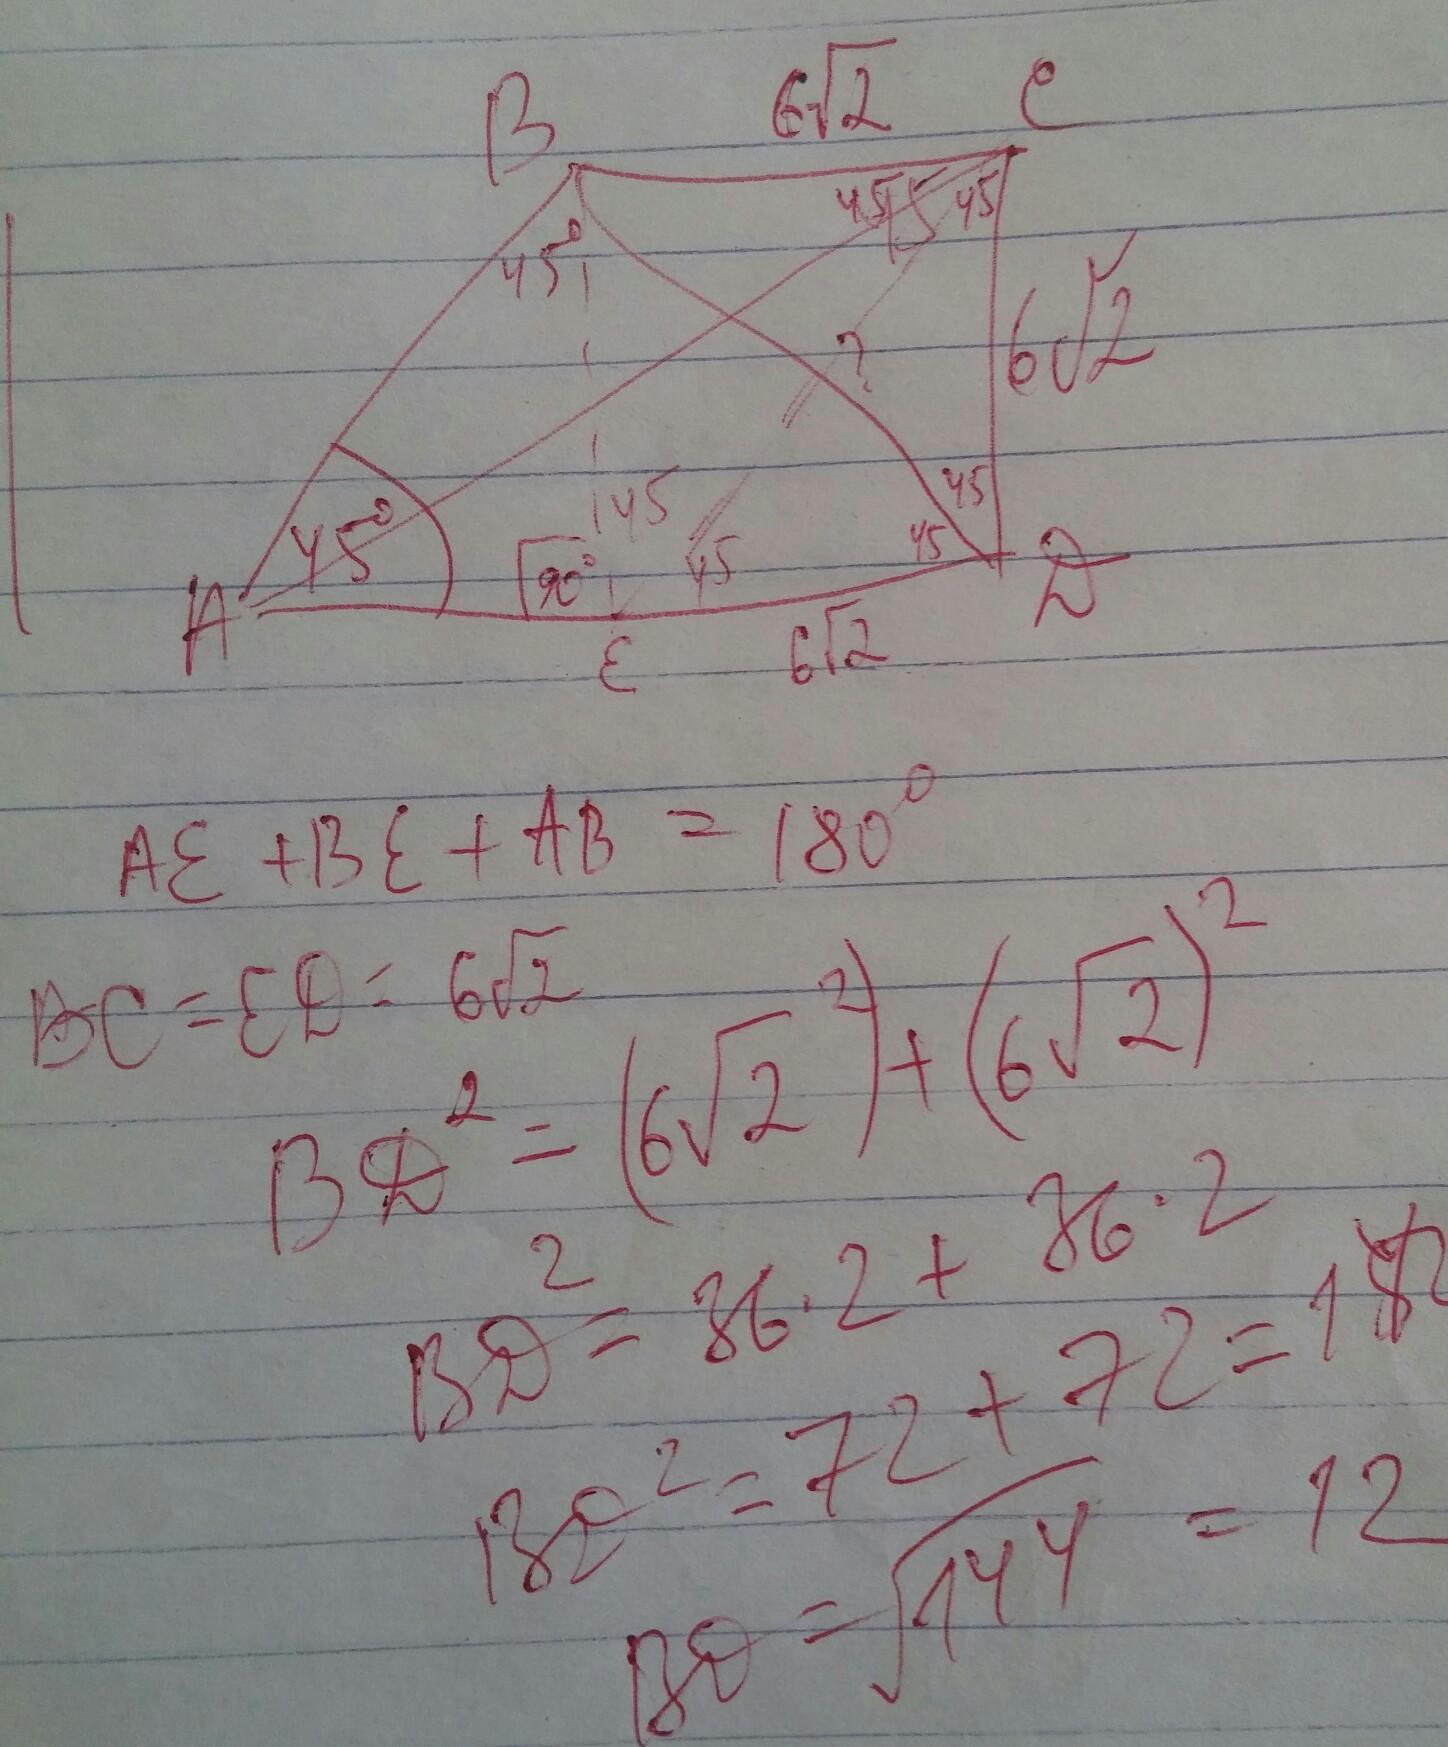 B 6√2 C
45° 45 45
6√2
?
45
45° 45
90° 45 45
A E 6√2 D
AE + BE + AB = 180°
BC = ED = 6√2
BD² = (6√2²) + (6√2)²
BD² = 36.2 + 36.2
BD² = 72 + 72 =
BD = √144 = 12